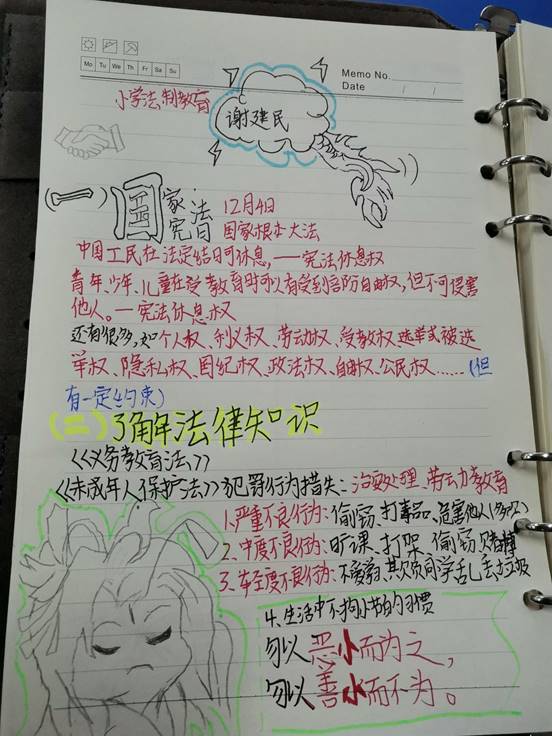 Memo No.
Mo Tu We Th Fr Sa Su
Date / /
小学法制教育
谢建民
(一) 国家宪法日 12月4日
国家根本大法
中国工民在法定结日可休息,——宪法休息权
青年、少年、儿童在受教育时可以有受到言防自由权,但不可侵害
他人。—宪法休息权
还有很多,如个人权、利义权、劳动权、受教权、选举式被选
举权、隐私权、国纪权、政法权、自由权、公民权……(但
有一定约束)
(二)了解法律知识
《义务教育法》
《未成年人保护法》犯罪行为措失:治安处理、劳动力教育
1.严重不良行为:偷窃、打毒品、危害他人
2.中度不良行为:旷课、打架、偷窃、赌博
3.轻度不良行为:不爱学、欺负同学、乱丢垃圾
4.生活中不拘小节的习惯
勿以恶小而为之,
勿以善小而不为。